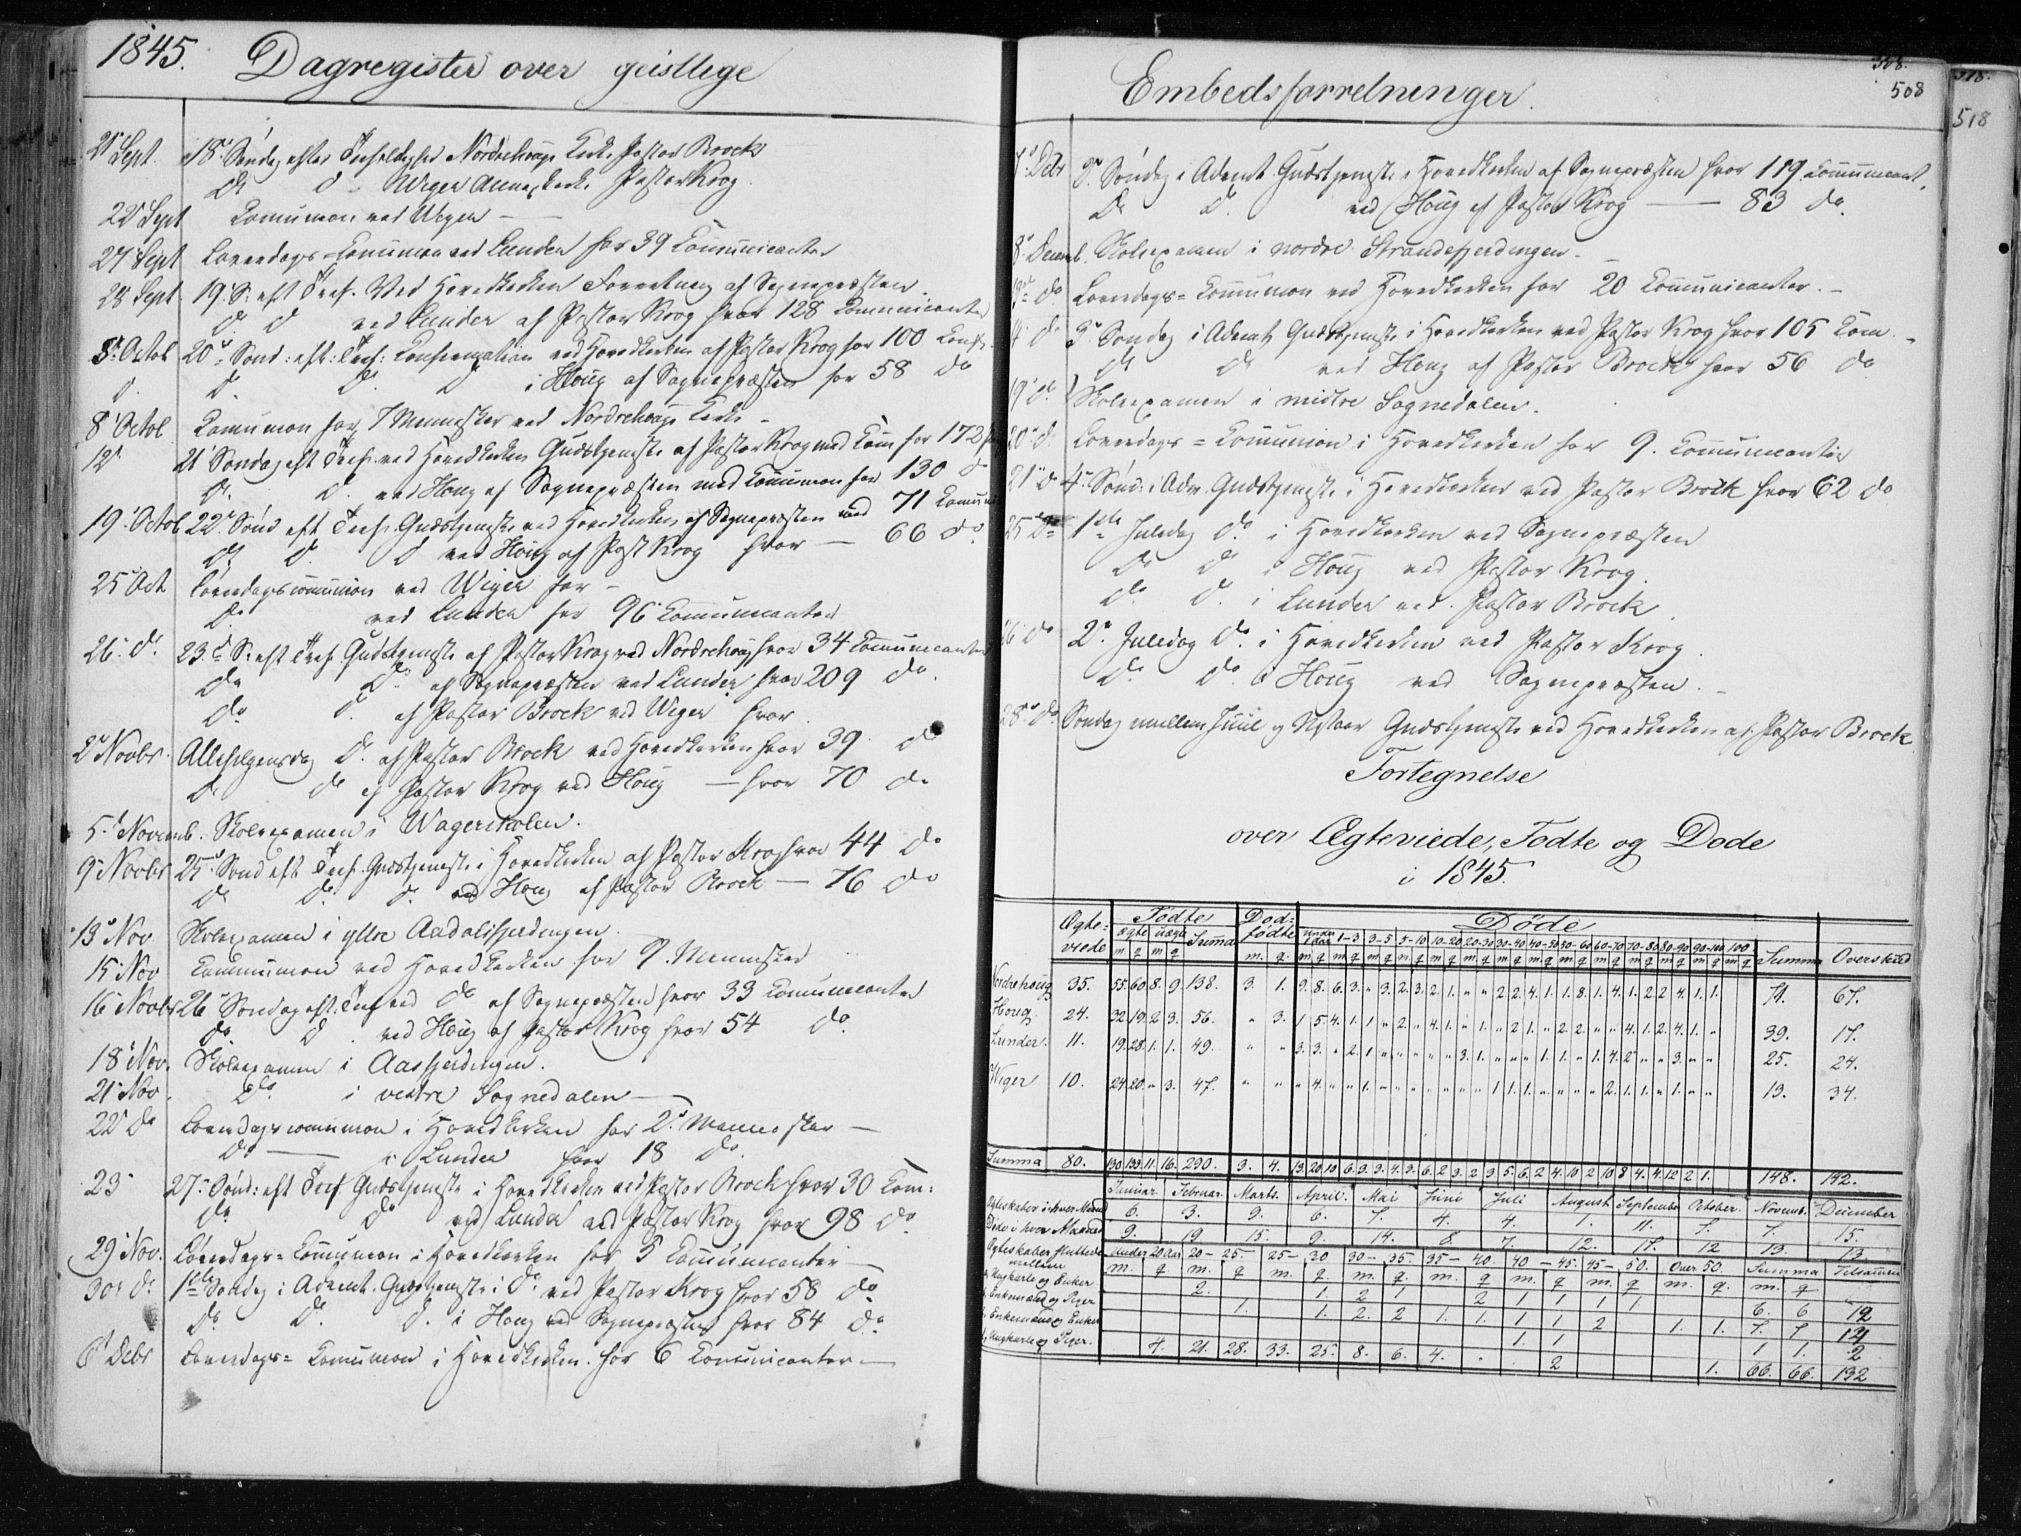 1845. Dagregister over geistlege
21 Sept. 18 Søndag efter Trefoldighed Nordrehougs Kirke Pastor Brock
Do D Wiger Annexkirke Pastor Krog
22 Sept Comunion ved Wiger
27 Sept Løverdags-Comunion ved Lunder for 39 Communicanter
28 Sept 19. S: eft Tref. Ved Hovedkirken Forretning af Sognepræsten
D. D ved Lunder af Pastor Krog hvor 128 Communicanter
5. Octob 20 Sønd: eft: Tref: Confirmation ved Hovedkirken af Pastor Krog for 100 Conf.
D. D. D. D i Houg af Sognepræsten for 58 do
8 Octob. Comunion for 7 Mennesker ved Nordrehougs Kirke
12 21 Søndag eft Tref. ved Hovedkirken Gudstjeneste af Pastor Krog med Com for 172
D. D. ved Houg af Sognepræsten med Communion for 130 D
19. Octob 22. Sønd eft Tref. Gudstjeneste ved Hovedkirken af Sognepræsten med 71 Comuni
D. D. D ved Houg af Past Krog hvor 66 Do.
25 Oct Løverdagscommunion ved Wiger for
Do ved Lunder for 96 Communicanter
26. D. 23. S: eft Tref Gudstjeneste af Pastor Krog ved Nordrehoug hvor 34 Communicanter
Do Do. af Sognepræsten ved Lunder hvor 209 do.
Do D. af Pastor Brock ved Wiger hvor
2 Novbr. Allehelgensdag D. af Pastor Brock ved Hovedkirken hvor 39 D
D. do af Pastor Krog ved Houg — hvor 70 do
5. Novemb. Skoleexamen i Wagerskolen.
9 Novbr 25 Sønd eft Tref. Gudstjeneste i Hovedkirken af Pastor Krog hvor 44 do
D. D. D. ved Houg af Pastor Brock — 76 do
13 Nov. Skoleexamen i ytre Aadalsfjerdingen.
15 Nov Communion ved Hovedkirken for 9. Mennesker
16 Novbr 26 Søndag eft. Tref ved do af Sognepræsten hvor 33 Comunicanter
Do D. ved Houg af Pastor Krog hvor 54 do.
18 Nov. Skoleexamen i Aasfjerdingen.
21 Nov. Do i vestre Sognedalen
22 Do Løverdagscomunion i Hovedkirken for 2. Mennesker
Do — i Lunder hvor 18 do.
23 27. Sønd: eft Tref Gudstjeneste i Hovedkirken ved Pastor Brock hvor 30 Com:
Do Do ved Lunder ved Pastor Krog hvor 98 do
29 Nov. Løverdags= Communion i Hovedkirken for 5 Communicanter
30 D. 1ste Søndag i Advent. Gudstjeneste i D. ved Pastor Krog hvor 58 do
D. D. D. i Houg ved Sognepræsten hvor 84 do.
6 Debr Løverdags= Comunion i Hovedkirken for 6 Comunicanter
Embedsforretninger.
508.
508
518.
518
7. Debr 2. Søndag i Advent Gudstjeneste i Hovedkirken af Sognepræsten hvor 119 Communicant.
D. D. ved Houg af Pastor Krog — 83 do.
8 Decemb. Skoleexamen i nordre Strandefjerdingen.
do Løverdags= Communion ved Hovedkirken for 20 Communicanter.
do 3. Søndag i Advent Gudstjeneste i Hovedkirken ved Pastor Krog hvor 105 Com.
D. D. ved Houg af Pastor Brock hvor 56 do
19 D. Skoleexamen i midtre Sognedalen.
20 D. Løverdags= Communion i Hovedkirken for 9. Communicanter
21 D. 4. Sønd: i Adv. Gudstjeneste i Hovedkirken ved Pastor Brock hvor 62 do
25 Do 1ste Juledag Do. i Hovedkirken ved Sognepræsten
D. D. i Houg ved Pastor Krog.
D. D. i Lunder ved Pastor Brock
26 Do 2. Juledag Do. i Hovedkirken ved Pastor Krog.
D. D. i Houg ved Sognepræsten.
28 Do. Søndag mellem Juul og Nytaar Gudstjeneste ved Hovedkirken af Pastor Brock
Fortegnelse
over Ægteviede, Fødte og Døde
i 1845.
Ægteviede Fødte Dødfødte Døde
ægte uægte Summa under 1 aar 1-3 3-5 5-10 10-20 20-30 30-40 40-50 50-60 60-70 70-80 80-90 90-100 100 Summa Overskud
Nordrehoug 35. 55. 60. 8. 9. 138. 3. 1. 9. 8. 6. 3. " 3. 2. 3. 2. 1. " " 2 2. 4. 1. 1. 8. 1. 4. 1. 2 2 4. 1. 1. 71. 67.
Houg. 24. 32. 19. 2 3. 56. " 3. 1. 5. 4. 1. 1 " 2. " 4. 1. " 1. " 2 1. " 2 2. " " 4. 1. 2. 4. 1. " 39. 17.
Lunder. 11. 19. 28. 1. 1. 49. " " 3. 3. " 2. 1. 25. 24.
Wiger 10. 24. 20. " 3. 47. " " " 4. " " 1. 13. 34.
Summa 80. 130 133. 11. 16. 290. 3. 4. 13. 20. 10 6. 3. 3. 4. 3. 6. 2 3. 2 3 5. 6. 2 4. 10 2 10 8 4. 4. 12 2 1. 148. 142.
Januar. Februar. Marts. April. Mai Juni Juli August September October. Novemb. December
Ægteskaber i hver Maaned 6. 3. 9. 6. 7. 4. 4. 1. 11. 7. 7. 15.
Døde i hver Maaned 9. 19 15. 9. 14. 8 7. 12. 17. 12 13. 13
Ægteskaber sluttede mellem Under 20 Aar 20 — 25. 25 — 30 30 — 35. 35 — 40. 40 — 45. 45 — 50. Over 50. Summa Tilsammen
m. q m. q m. q. m. q. m. q m. q m. q m. q. m. q
Ungkarle og Enker 2. 1. 2 1 2 1 1 1 1 6. 6 12
Enkemænd og Piger 1. 1. 2. 2 1. 1. 1 1 2 1. 1. 7. 7. 14
Enkemænd og Enker 1. 1 1 1. 2
Ungkarle og Piger. 4. 21. 28. 33. 25. 8. 6. 4. 2 1. 66. 66. 132